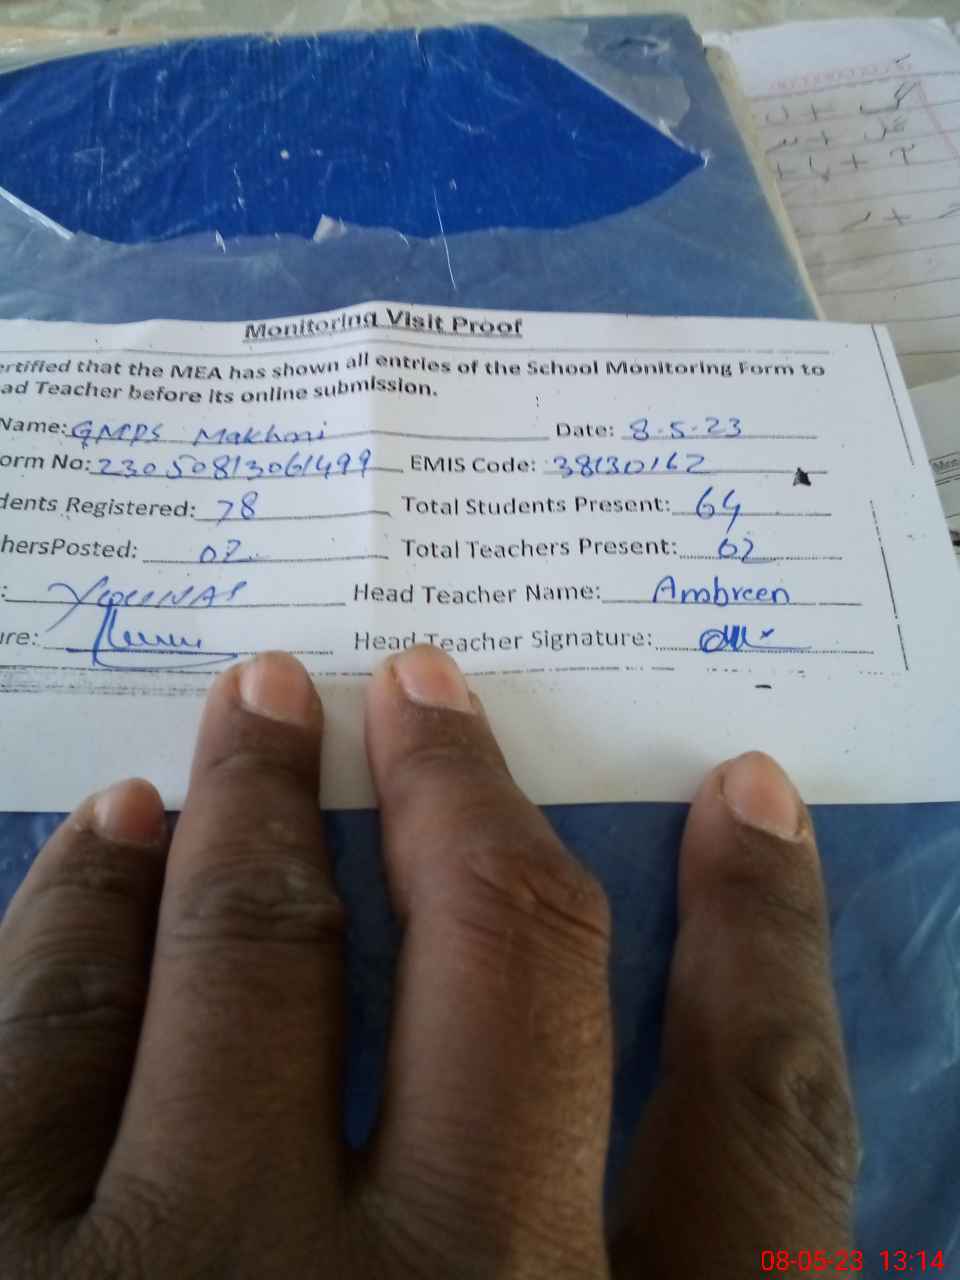 Monitoring Visit Proof
ertified that the MEA has shown all entries of the School Monitoring Form to
ad Teacher before its online submission.
Name: GMPS Makhani Date: 8-5-23
orm No: 23050813061499 EMIS Code: 38130162
dents Registered: 78 Total Students Present: 64
hersPosted: 02 Total Teachers Present: 02
: YOUNAS Head Teacher Name: Ambreen
ure: Head Teacher Signature:
08-05-23 13:14